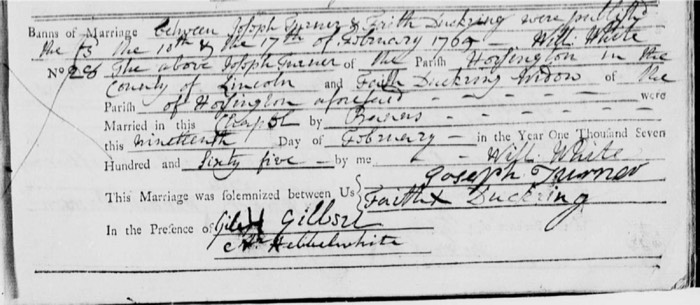 Banns of Marriage between Joseph Turner & Faith Duckring were publish'd
the the 10th & the 17th of February 1765 Will: White
No. The above Joseph Turner of the Parish Horsington in the
County of Lincoln and Faith Duckring Widow of the
Parish of Horsington aforesaid were
Married in this Chapel by Banns
this Nineteenth Day of February in the Year One Thousand Seven
Hundred and Sixty five by me Will: White
Joseph Turner
This Marriage was solemnized between Us Faith X Duckring
In the Presence of Giles Gilbert
Hebbelwhite